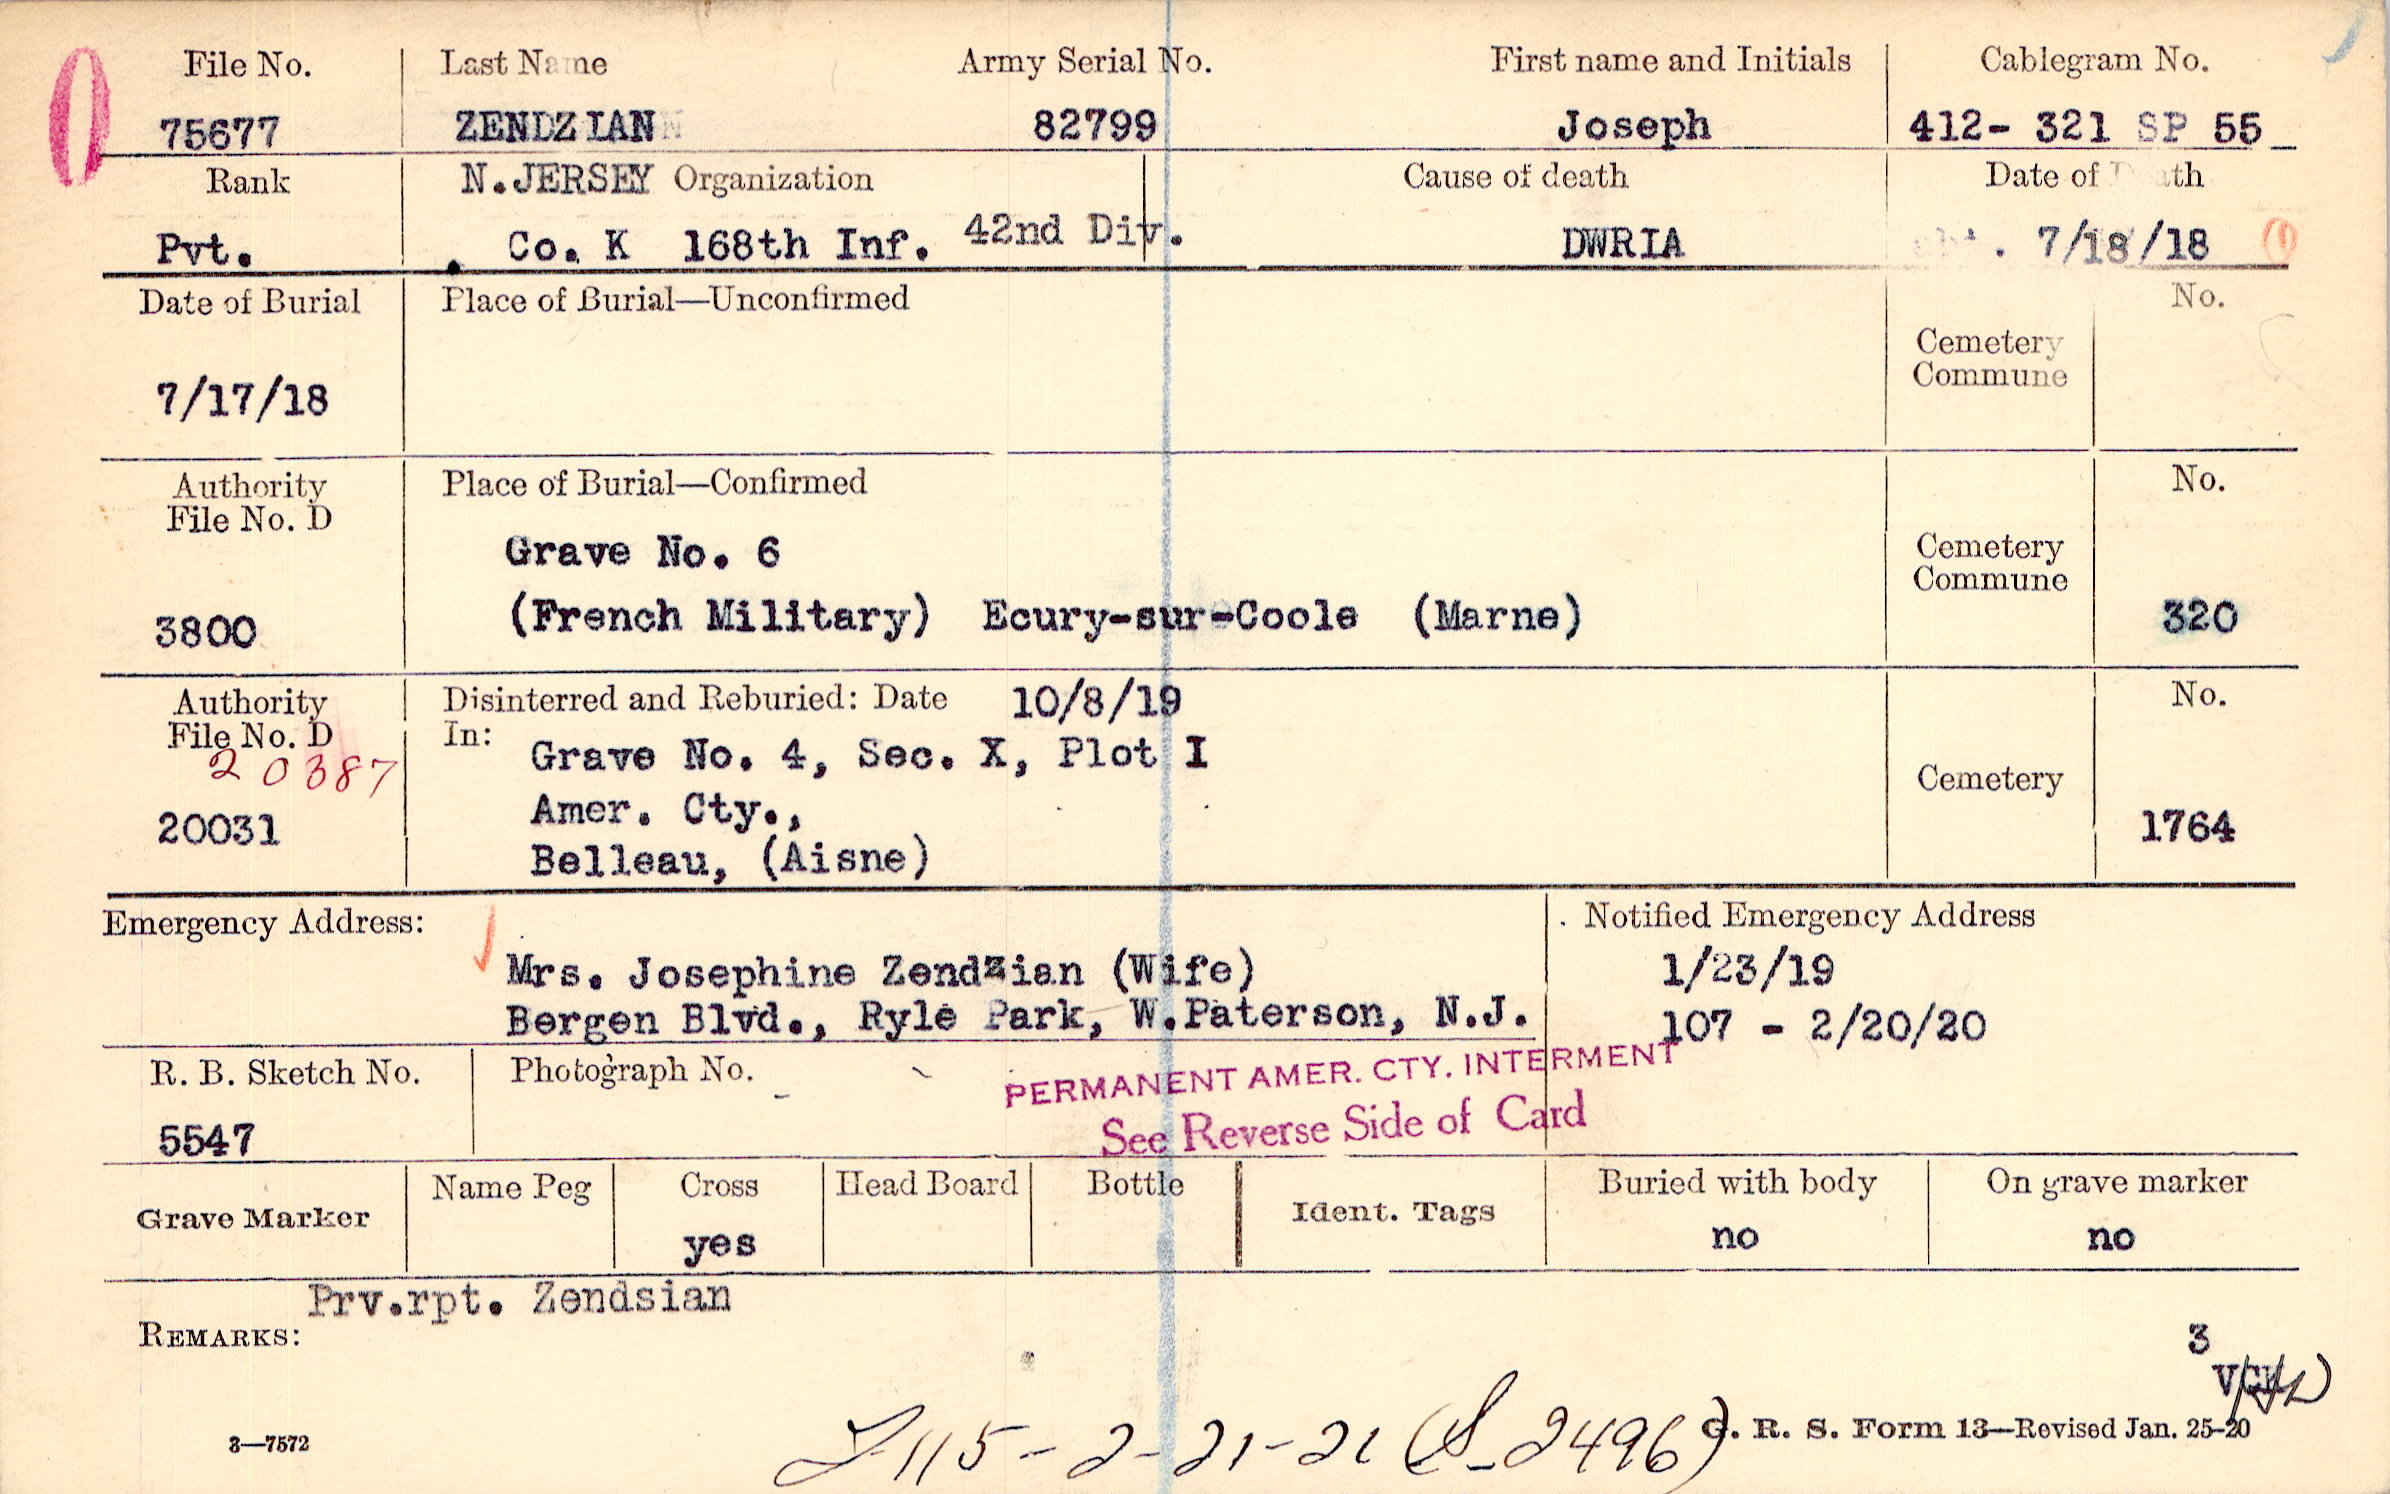 File No. Last Name Army Serial No. First name and Initials Cablegram No.
75677 ZENDZIAN 82799 Joseph 412- 321 SP 55
Rank N.JERSEY Organization Cause of death Date of Death
Pvt. Co. K 168th Inf. 42nd Div. DWRIA 7/18/18
Date of Burial Place of Burial—Unconfirmed No.
Cemetery
Commune
7/17/18
Authority Place of Burial—Confirmed No.
File No. D
Grave No. 6 Cemetery
Commune
3800 (French Military) Ecury-sur-Coole (Marne) 320
Authority Disinterred and Reburied: Date 10/8/19 No.
File No. D In: Grave No. 4, Sec. X, Plot I
20387
Cemetery
20031 Amer. Cty., 1764
Belleau, (Aisne)
Emergency Address: Notified Emergency Address
Mrs. Josephine Zendzian (Wife) 1/23/19
Bergen Blvd., Ryle Park, W.Paterson, N.J. 107 - 2/20/20
R. B. Sketch No. Photograph No. PERMANENT AMER. CTY. INTERMENT
5547 See Reverse Side of Card
Name Peg Cross Head Board Bottle Buried with body On grave marker
Grave Marker Ident. Tags
yes no no
Prv.rpt. Zendsian
REMARKS:
3
3—7572 115-2-21-21 (S-2496) G. R. S. Form 13—Revised Jan. 25-20